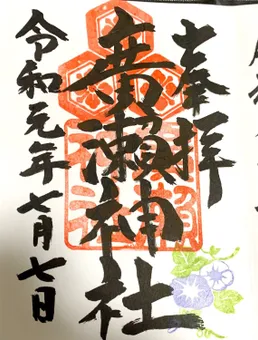 奉拝
廣瀬神社
令和元年七月七日